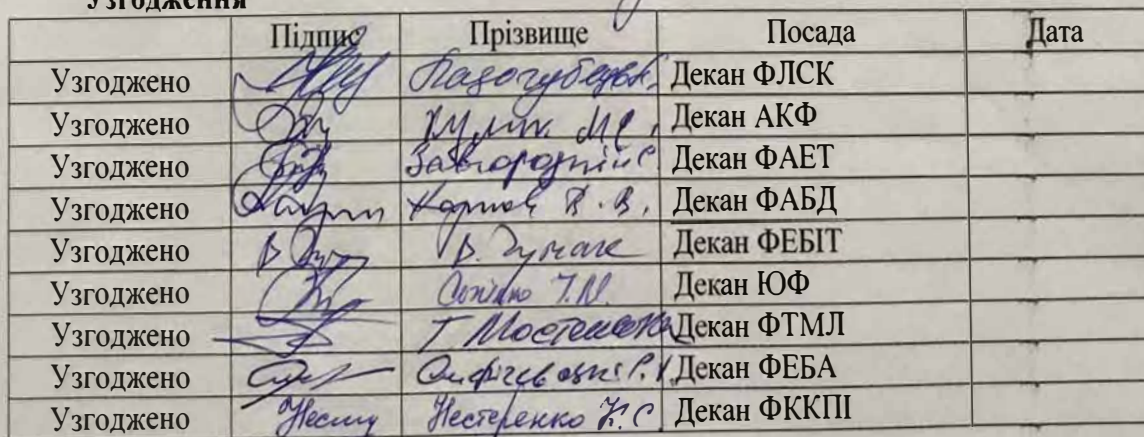 Узгодження
Підпис Прізвище Посада Дата
Узгоджено Декан ФЛСК
Узгоджено Декан АКФ
Узгоджено Завгородній С. Декан ФАЕТ
Узгоджено Карпов В.В. Декан ФАБД
Узгоджено В. Чумак Декан ФЕБІТ
Узгоджено Декан ЮФ
Узгоджено Т Мостенська Декан ФТМЛ
Узгоджено Декан ФЕБА
Узгоджено Нестеренко К.С. Декан ФККПІ